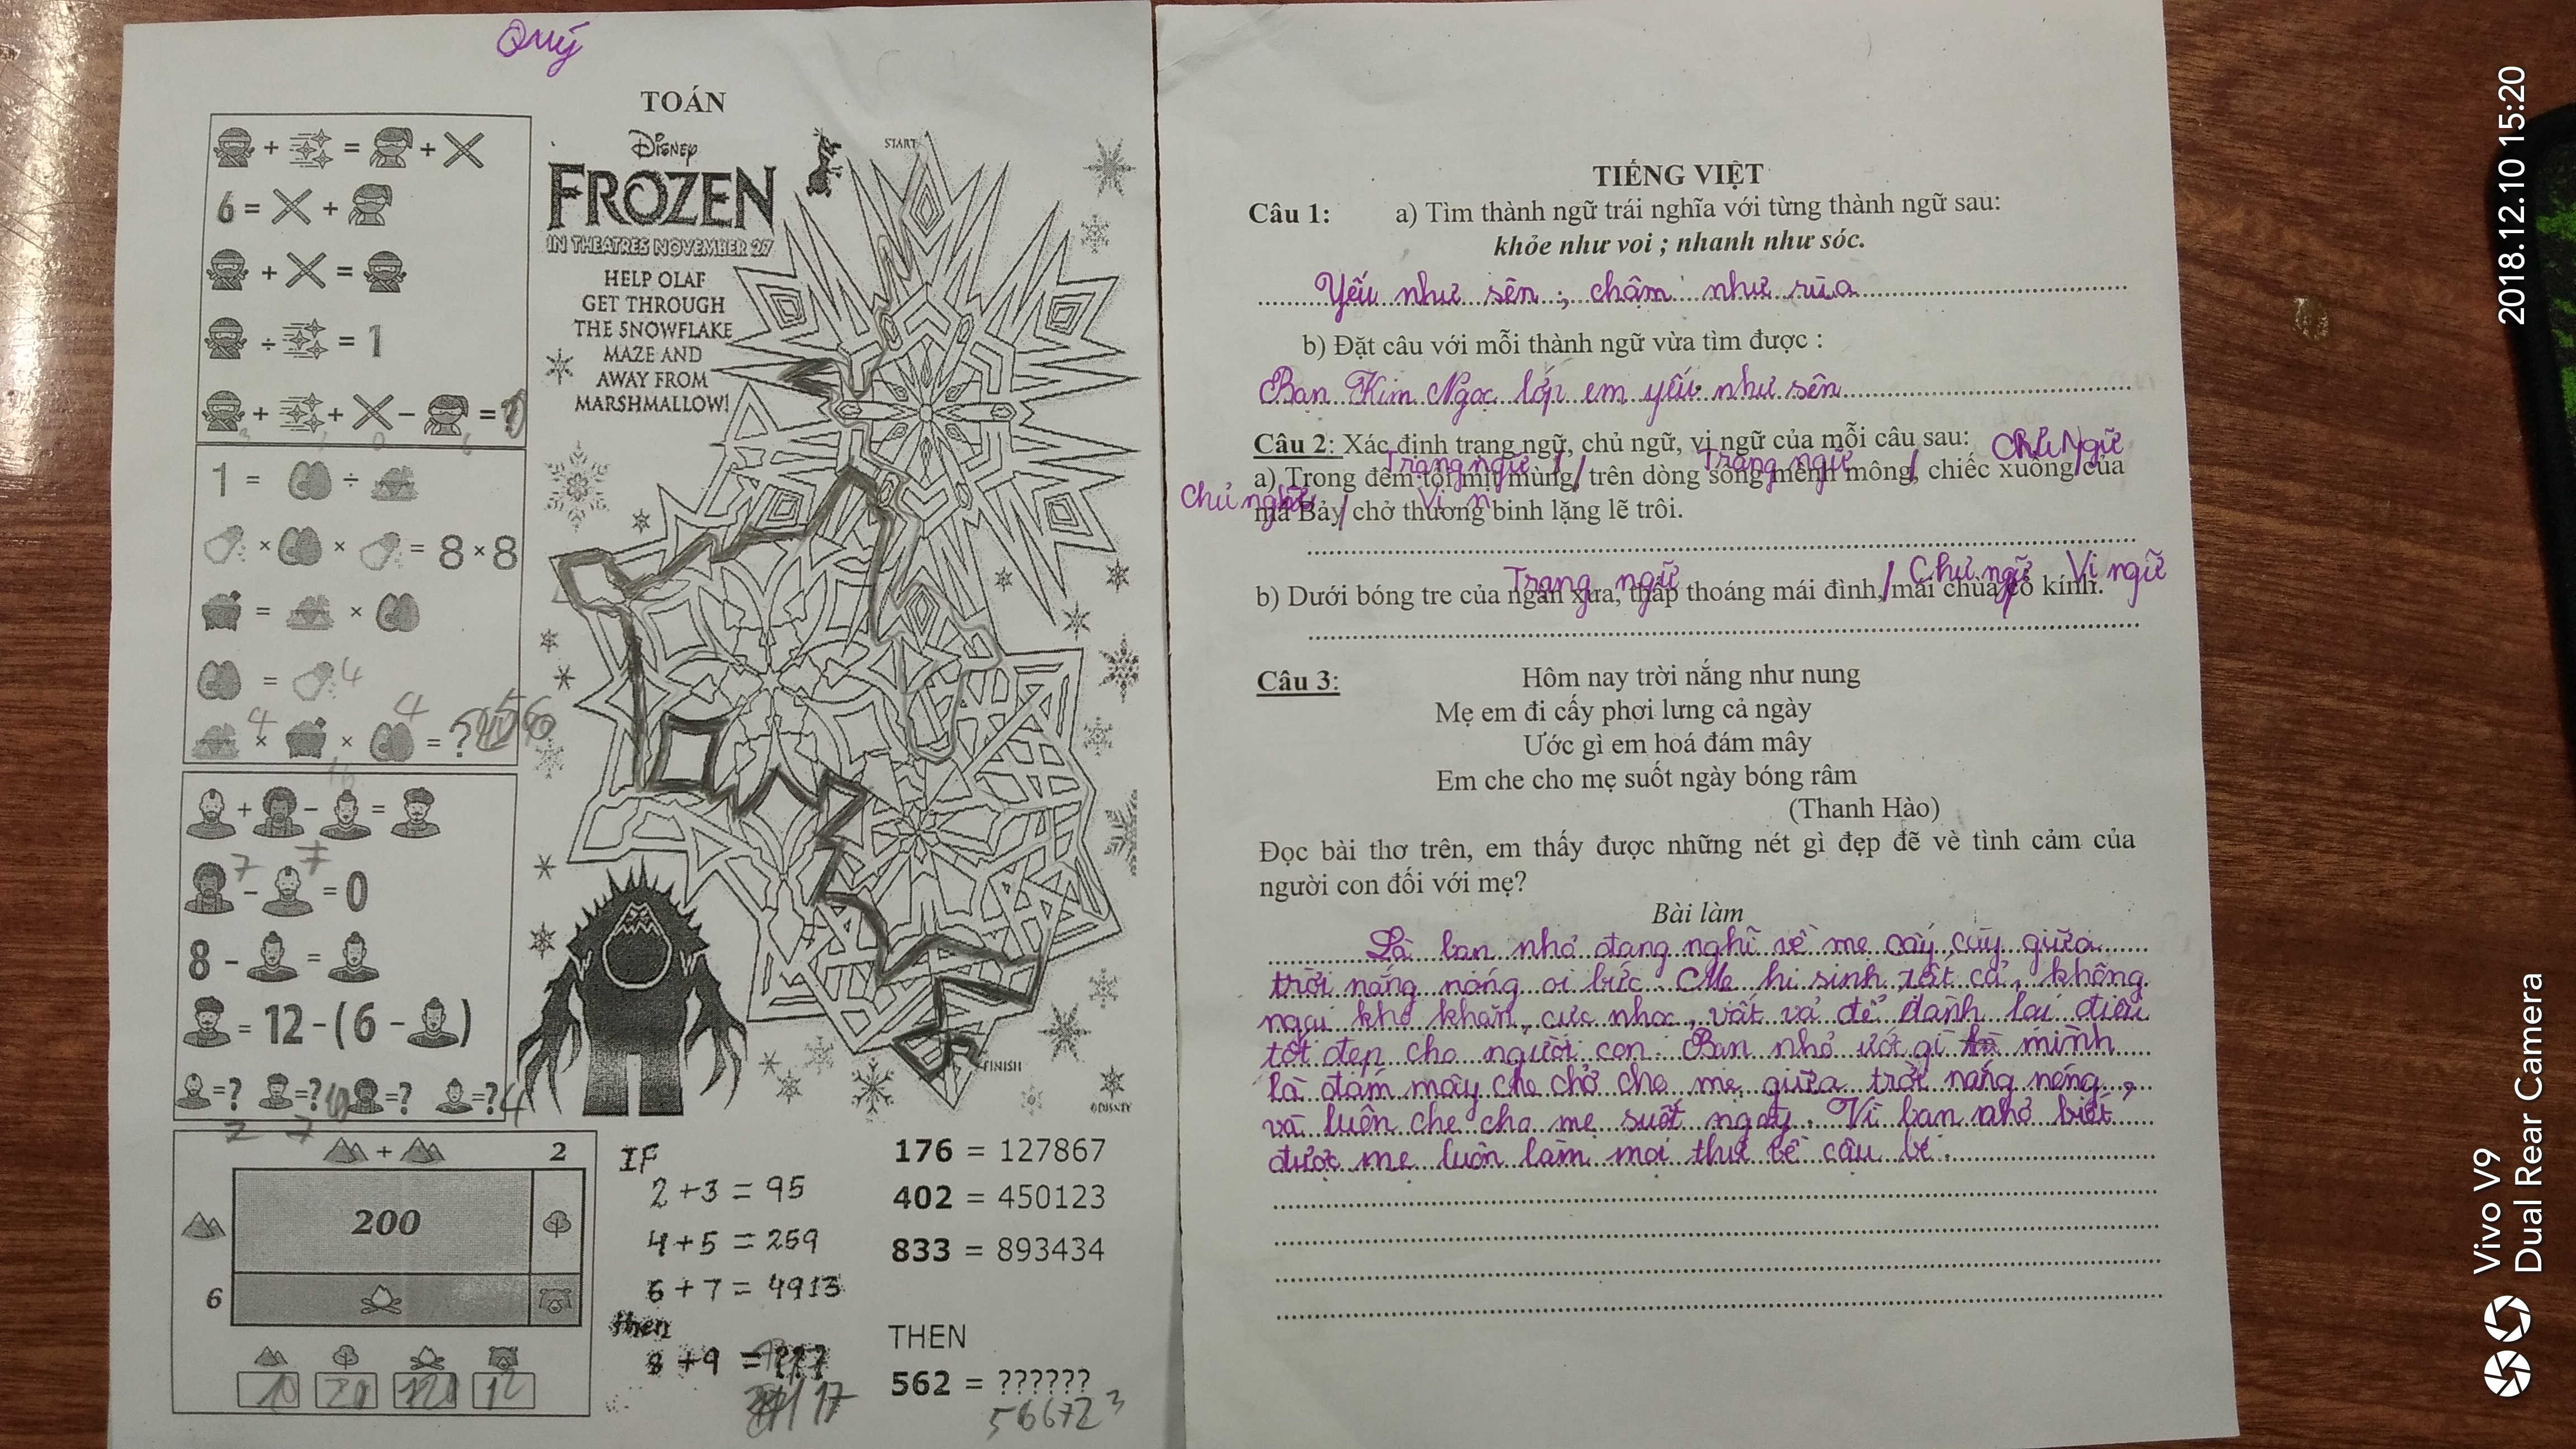 Quý
TOÁN
+ = + ×
6 = × +
+ × =
÷ = 1
+ + × − = ? 0
1 = ÷
× × = 8 × 8
= ×
= 4
4 4
× × = ? 256
16
+ − =
7 7
− = 0
8 − =
= 12 − (6 − )
=? =? =? =? 4
7 7
+ 2
200
6
10 20 120 12
DISNEY
FROZEN
IN THEATRES NOVEMBER 27
HELP OLAF
GET THROUGH
THE SNOWFLAKE
MAZE AND
AWAY FROM
MARSHMALLOW!
START
FINISH
©DISNEY
IF
2 + 3 = 95
4 + 5 = 259
6 + 7 = 4913
then
8 + 9 = ???
17
176 = 127867
402 = 450123
833 = 893434
THEN
562 = ??????
566723
TIẾNG VIỆT
Câu 1: a) Tìm thành ngữ trái nghĩa với từng thành ngữ sau:
khỏe như voi ; nhanh như sóc.
Yếu như sên ; chậm như rùa
b) Đặt câu với mỗi thành ngữ vừa tìm được :
Bạn Kim Ngọc lớp em yếu như sên
Câu 2: Xác định trạng ngữ, chủ ngữ, vị ngữ của mỗi câu sau:
Trạng ngữ / Trạng ngữ / Chủ Ngữ
a) Trong đêm tối mịt mùng, trên dòng sông mênh mông, chiếc xuồng của
Chủ ngữ / Vị n
má Bảy chở thương binh lặng lẽ trôi.
Trạng ngữ / Chủ ngữ Vị ngữ
b) Dưới bóng tre của ngàn xưa, thấp thoáng mái đình, mái chùa cổ kính.
Câu 3: Hôm nay trời nắng như nung
Mẹ em đi cấy phơi lưng cả ngày
Ước gì em hoá đám mây
Em che cho mẹ suốt ngày bóng râm
(Thanh Hào)
Đọc bài thơ trên, em thấy được những nét gì đẹp đẽ vè tình cảm của
người con đối với mẹ?
Bài làm
Là bạn nhỏ đang nghĩ về mẹ cấy cày giữa
trời nắng nóng oi bức. Mẹ hi sinh tất cả, không
ngại khó khăn, cực nhọc, vất vả để dành lại điều
tốt đẹp cho người con. Bạn nhỏ ước gì mình
là đám mây che chở cho mẹ giữa trời nắng nóng,
và luôn che cho mẹ suốt ngày. Vì bạn nhỏ biết
được mẹ luôn làm mọi thứ về cậu bé.
2018.12.10 15:20
Vivo V9
Dual Rear Camera